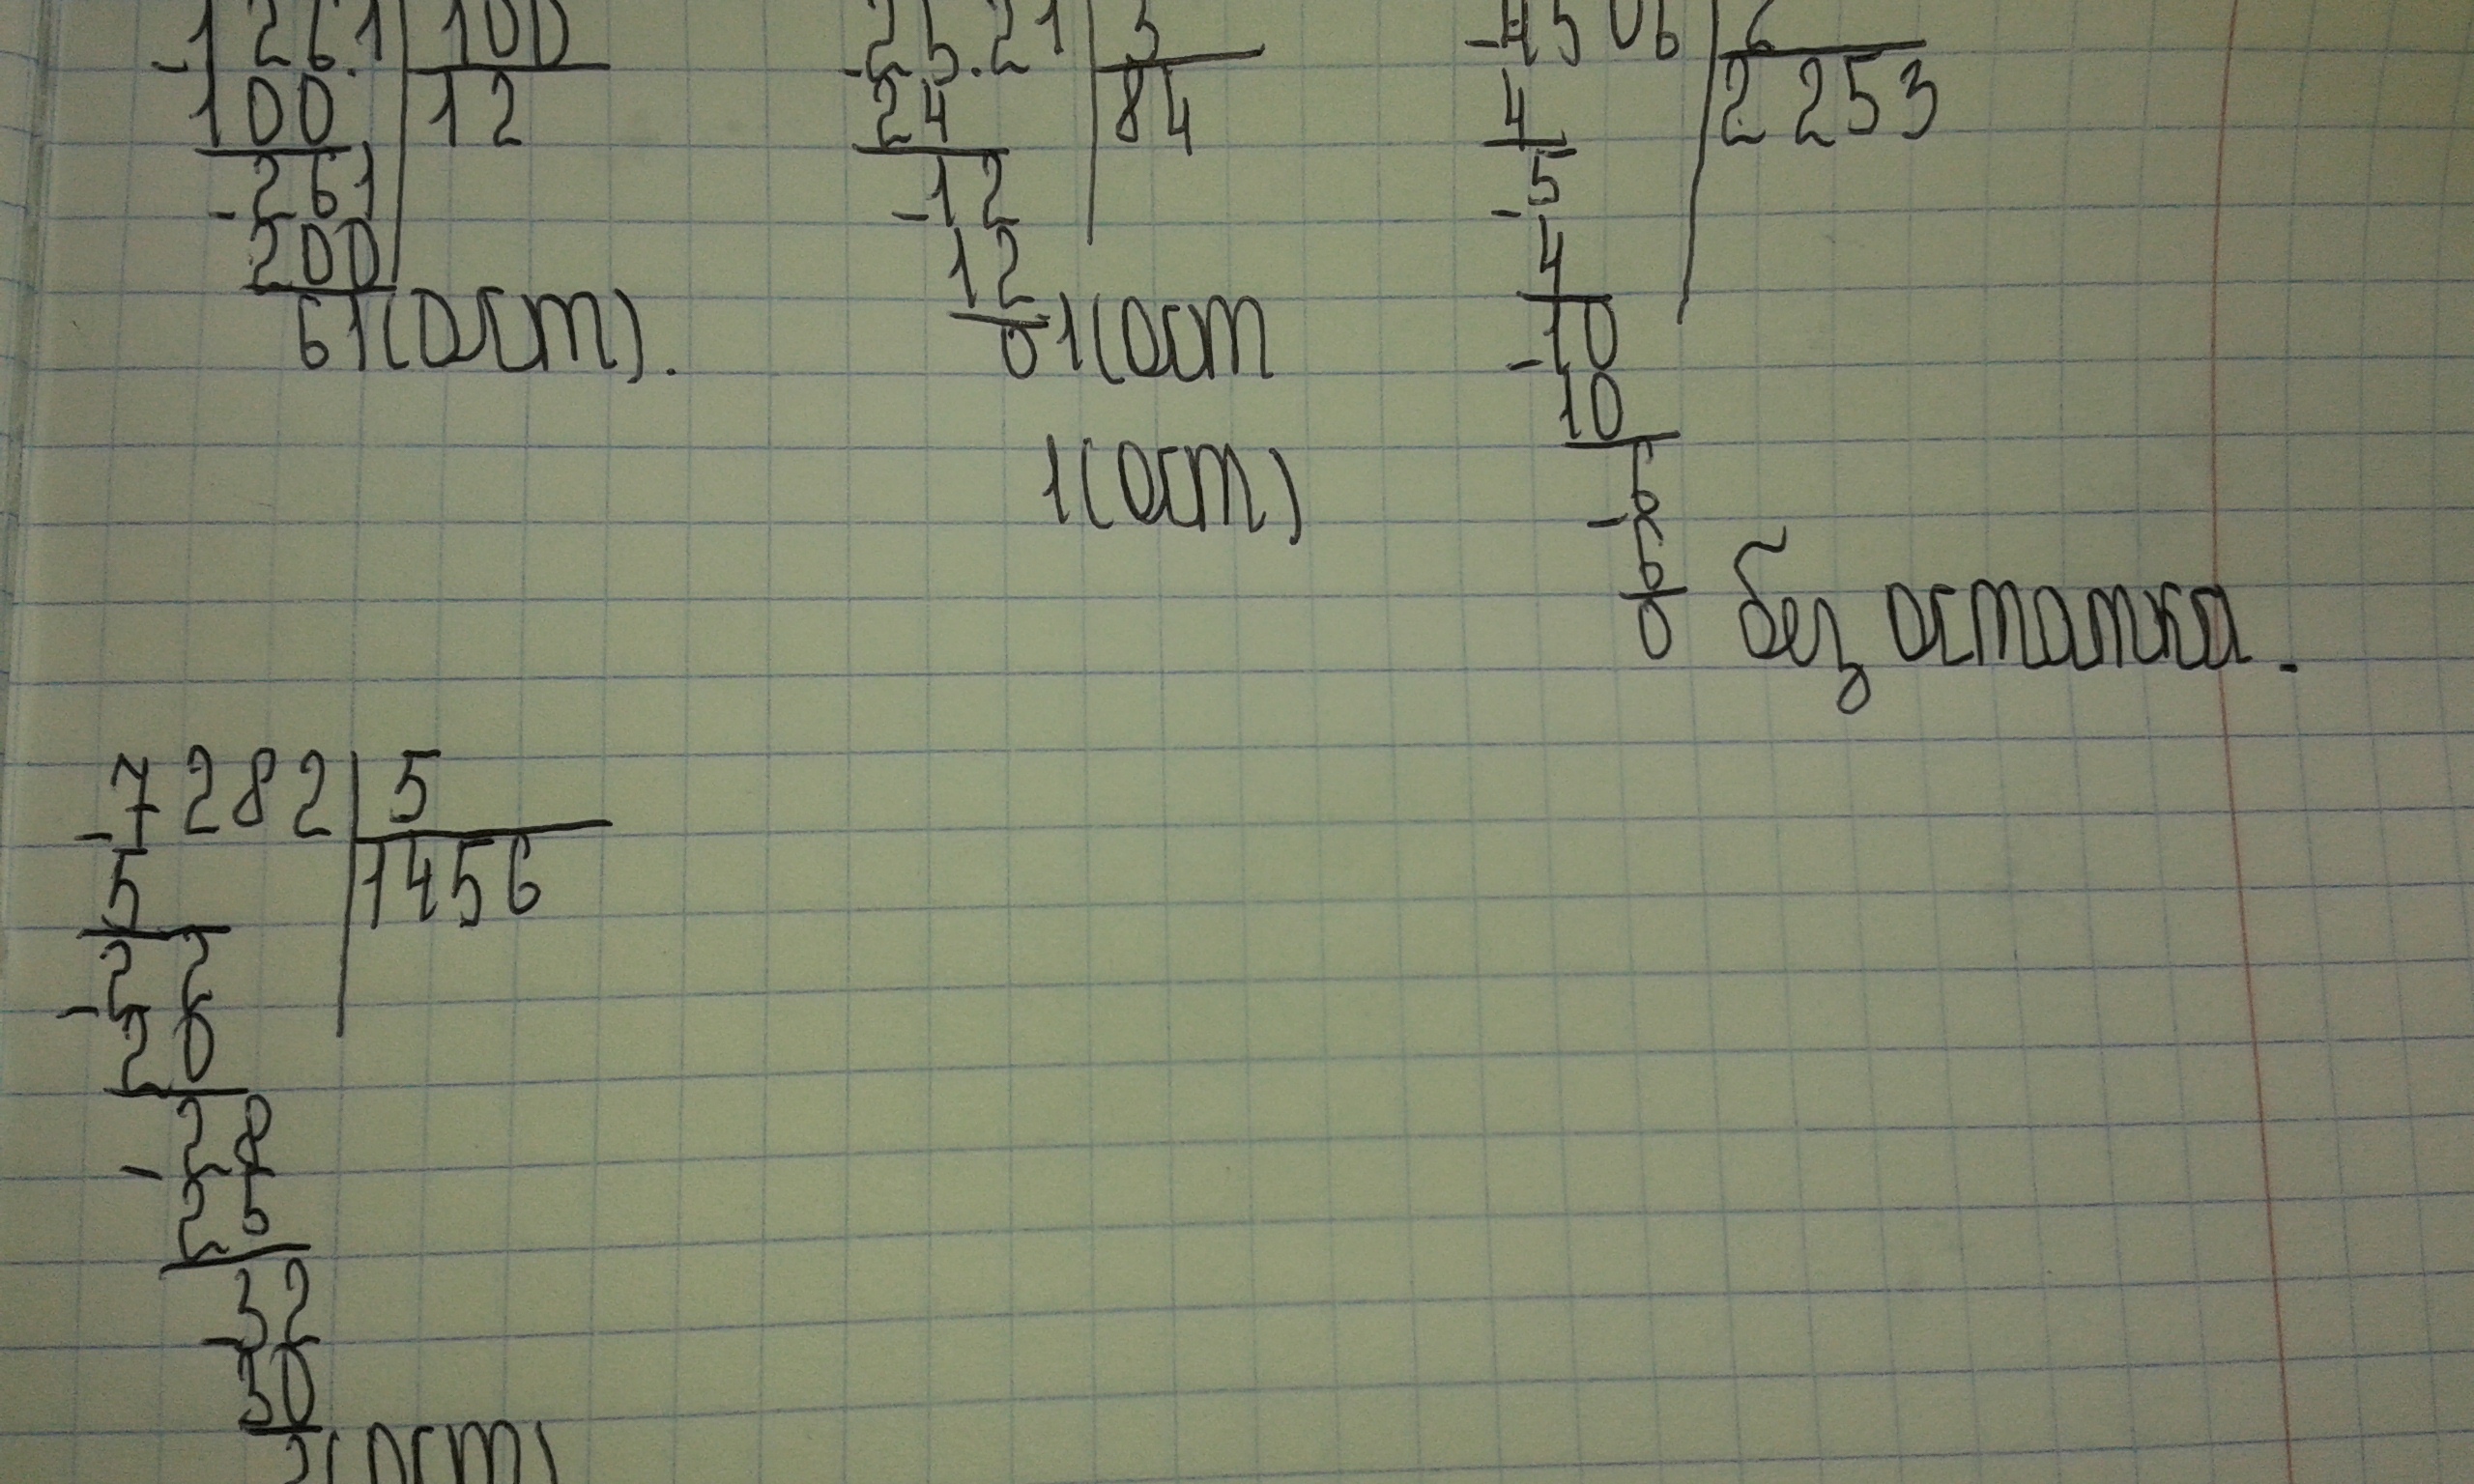 -1261 | 100
100 | 12
-261
200
61(ост).
-25.21 | 3
24 | 84
-12
12
01(ост
1(ост)
-4506 | 2
4 | 2253
-5
4
-10
10
-6
6
0 без остатка.
-7282 | 5
5 | 1456
-22
20
-28
25
-32
30
2(ост)